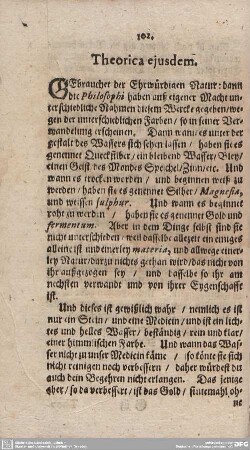 102.
Theorica ejusdem.
GEbrauchet der Ehrwürdigen Natur: dann
die Philosophi haben auß eigener Macht un-
terschiedliche Nahmen diesem Wercke gegeben/ we-
gen der unterschiedlichen Farben/ so in seiner Ver-
wandelung erscheinen. Dann wann es unter der
gestalt des Wassers sich sehen lassen / haben sie es
genennet Quecksilber/ ein bleibend Wasser/ Bley/
einen Geist des Mondes Speichel/ Zinn/ etc. Und
wann es trocken worden / und beginnen weiß zu
werden / haben sie es genennet Silber/ Magnesia,
und weissen sulphur. Und wann es beginnet
roht zu werden / haben sie es genennet Gold und
fermentum. Aber in dem Dinge selbst sind sie
nicht unterschieden / weil dasselbe allezeit ein einiges
allein ist und einerley materia, und allwege einer-
ley Natur/ darzu nichts gethan wird/ das nicht von
ihr außgezogen sey / und dasselbe so ihr am
nechsten verwandt und von ihrer Eygenschafft
ist.
Und dieses ist gewißlich wahr / nemlich es ist
nur ein Stein/ und eine Medicin/ und ist ein lich-
tes und helles Wasser/ beständig / rein und klar/
einer himmlischen Farbe. Und wann das Was-
ser nicht zu unser Medicin käme / so könte sie sich
nicht reinigen noch verbessern / daher würdest du
auch dein Begehren nicht erlangen. Das jenige
aber/ so da verbessert/ ist das Gold / sintemahl oh-
ne